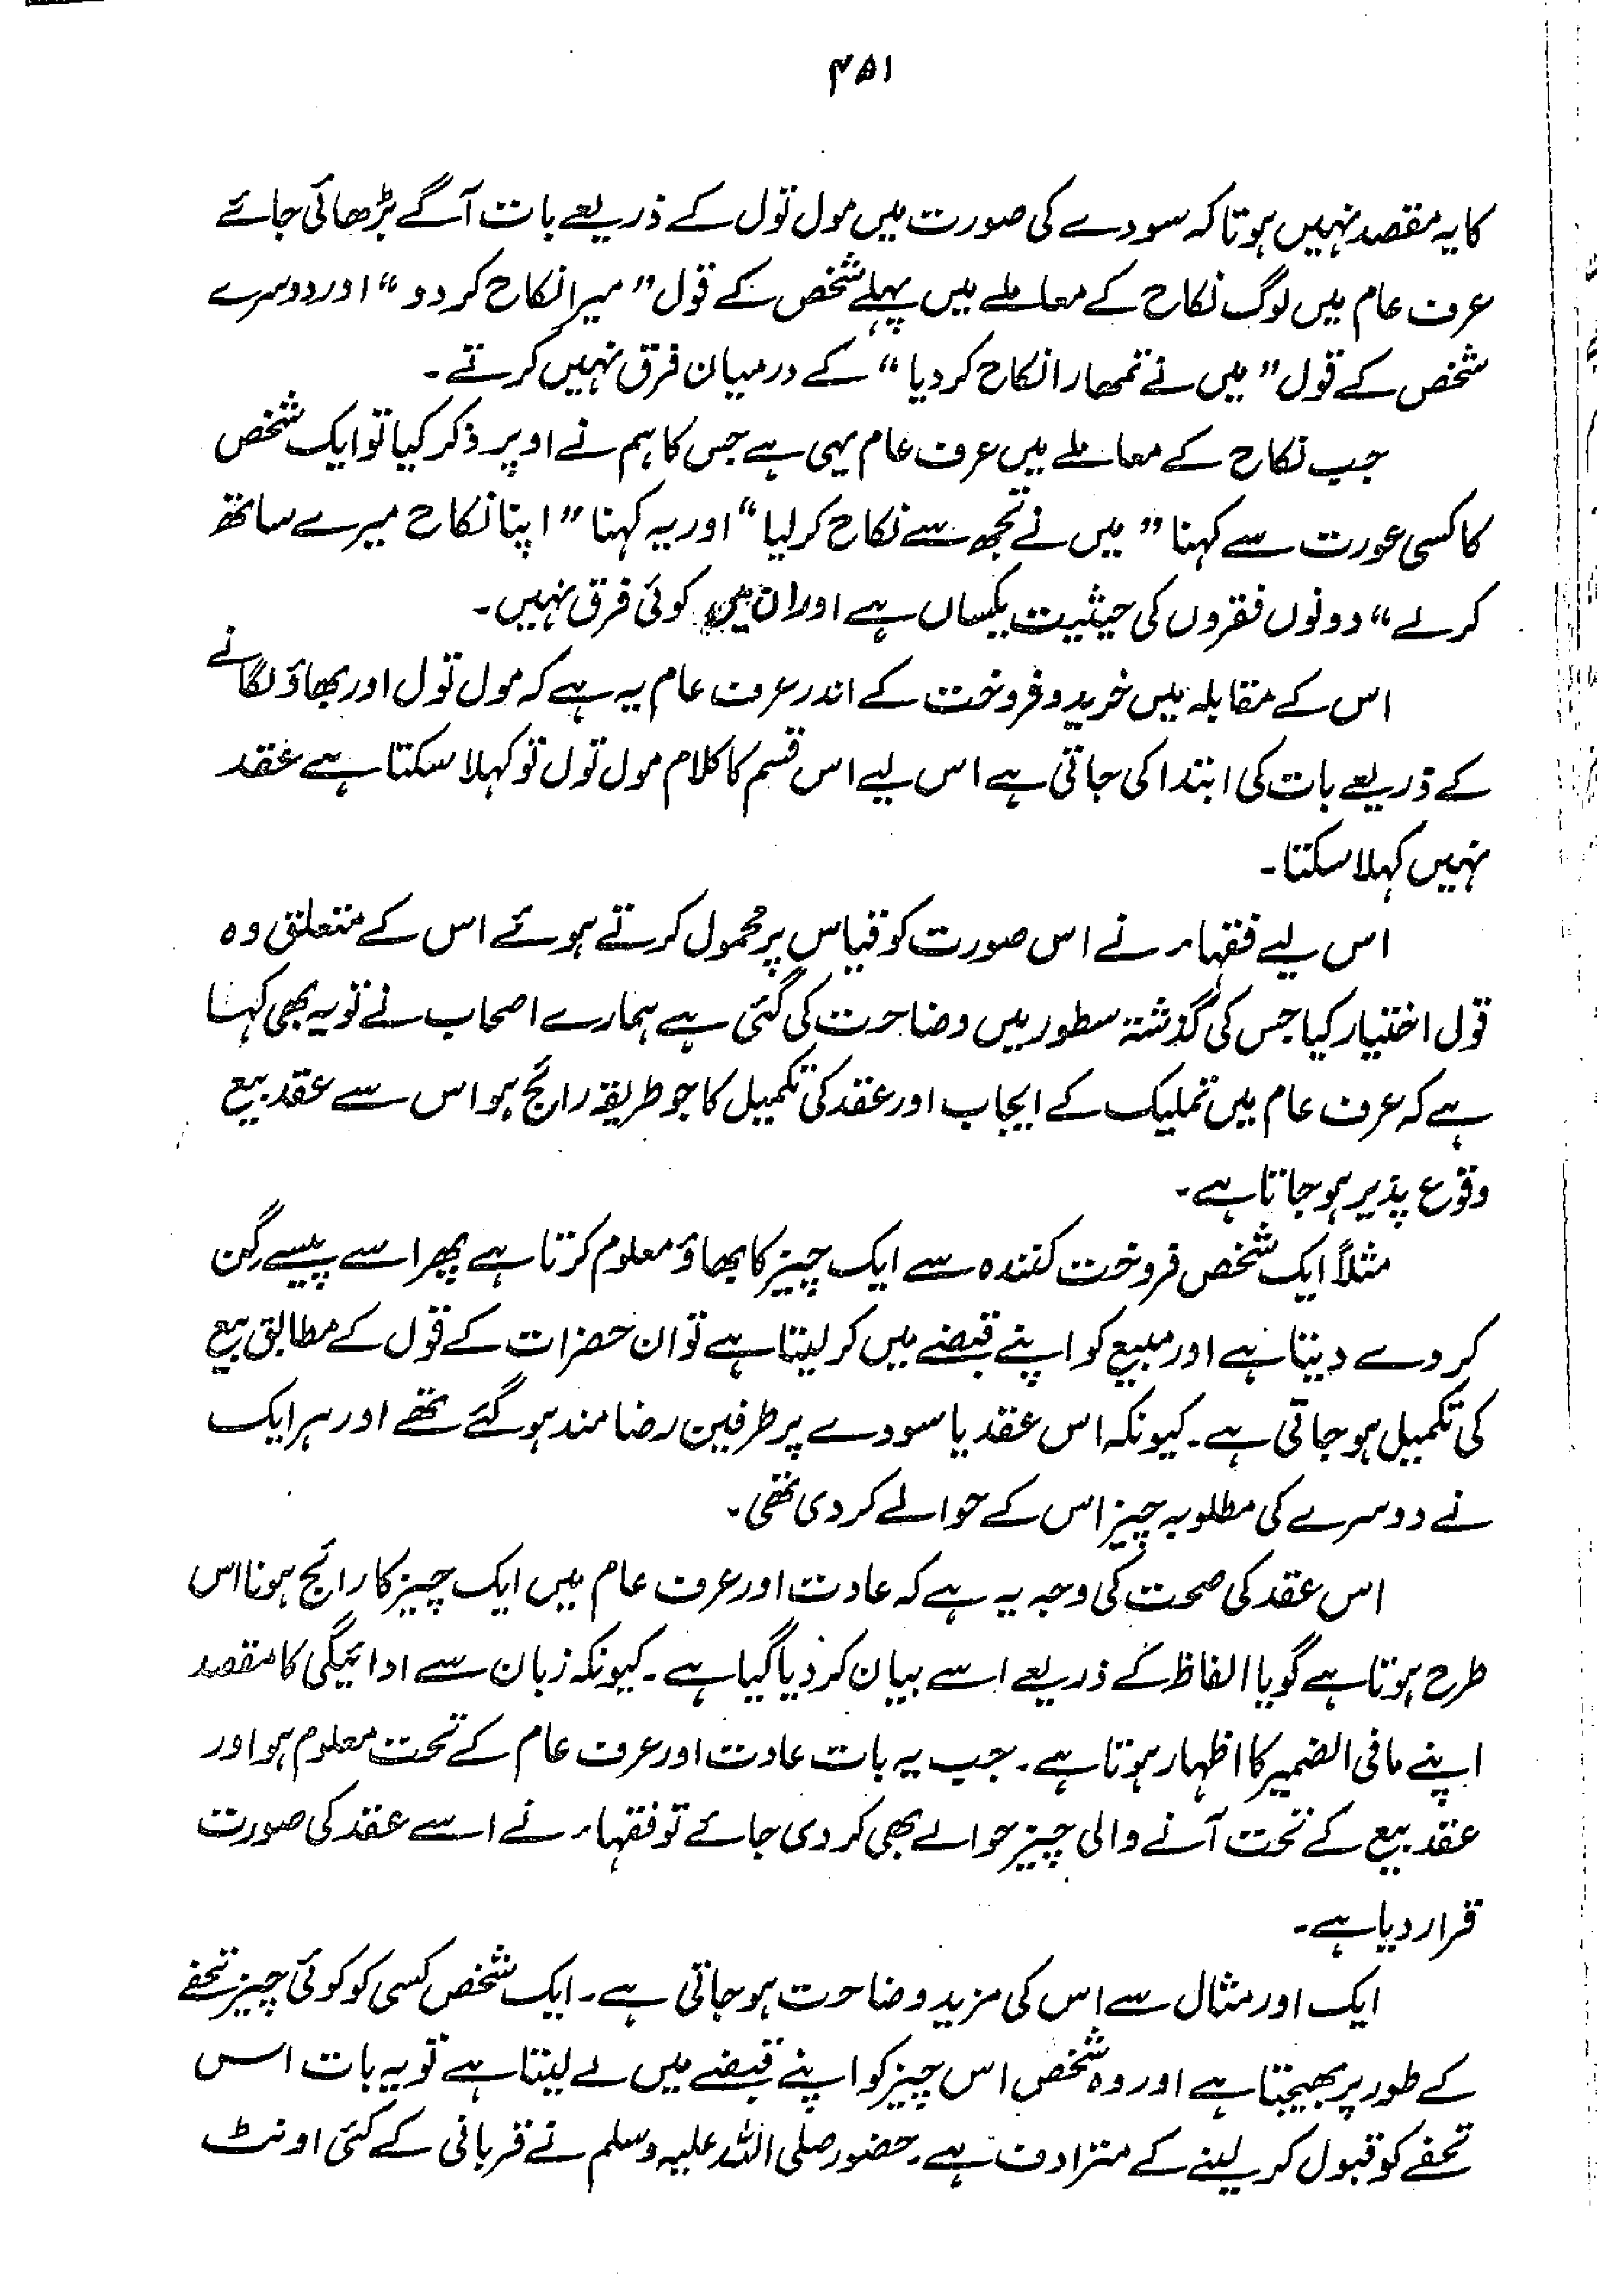 ۴۵۱
کا یہ مقصد نہیں ہوتا کہ سودے کی صورت میں مول تول کے ذریعے بات آگے بڑھائی جائے
عرف عام میں لوگ نکاح کے معاملے میں پہلے شخص کے قول ”میرا نکاح کر دو“ اور دوسرے
شخص کے قول ”میں نے تمھارا نکاح کر دیا“ کے درمیان فرق نہیں کرتے۔
جب نکاح کے معاملے میں عرف عام یہی ہے جس کا ہم نے اوپر ذکر کیا تو ایک شخص
کا کسی عورت سے کہنا ”میں نے تجھ سے نکاح کر لیا“ اور یہ کہنا ”اپنا نکاح میرے ساتھ
کر لے“ دونوں فقروں کی حیثیت یکساں ہے اور ان میں کوئی فرق نہیں۔
اس کے مقابلہ میں خرید و فروخت کے اندر عرف عام یہ ہے کہ مول تول اور بھاؤ لگانے
کے ذریعے بات کی ابتدا کی جاتی ہے اس لیے اس قسم کا کلام مول تول تو کہلا سکتا ہے عقد
نہیں کہلا سکتا۔
اس لیے فقہاء نے اس صورت کو قیاس پر محمول کرتے ہوئے اس کے متعلق وہ
قول اختیار کیا جس کی گذشتہ سطور میں وضاحت کی گئی ہے ہمارے اصحاب نے تو یہ بھی کہا
ہے کہ عرف عام میں تملیک کے ایجاب اور عقد کی تکمیل کا جو طریقہ رائج ہو اس سے عقد بیع
وقوع پذیر ہو جاتا ہے۔
مثلاً ایک شخص فروخت کنندہ سے ایک چیز کا بھاؤ معلوم کرتا ہے پھر اسے پیسے گن
کر دے دیتا ہے اور مبیع کو اپنے قبضے میں کر لیتا ہے تو ان حضرات کے قول کے مطابق بیع
کی تکمیل ہو جاتی ہے۔ کیونکہ اس عقد یا سودے پر طرفین رضامند ہو گئے تھے اور ہر ایک
نے دوسرے کی مطلوبہ چیز اس کے حوالے کر دی تھی۔
اس عقد کی صحت کی وجہ یہ ہے کہ عادت اور عرف عام میں ایک چیز کا رائج ہونا اس
طرح ہوتا ہے گویا الفاظ کے ذریعے اسے بیان کر دیا گیا ہے۔ کیونکہ زبان سے ادائیگی کا مقصد
اپنے مافی الضمیر کا اظہار ہوتا ہے۔ جب یہ بات عادت اور عرف عام کے تحت معلوم ہو اور
عقد بیع کے تحت آنے والی چیز حوالے بھی کر دی جائے تو فقہاء نے اسے عقد کی صورت
قرار دیا ہے۔
ایک اور مثال سے اس کی مزید وضاحت ہو جاتی ہے۔ ایک شخص کسی کو کوئی چیز تحفے
کے طور پر بھیجتا ہے اور وہ شخص اس چیز کو اپنے قبضے میں لے لیتا ہے تو یہ بات اس
تحفے کو قبول کر لینے کے مترادف ہے۔ حضور صلی اللہ علیہ وسلم نے قربانی کے کئی اونٹ